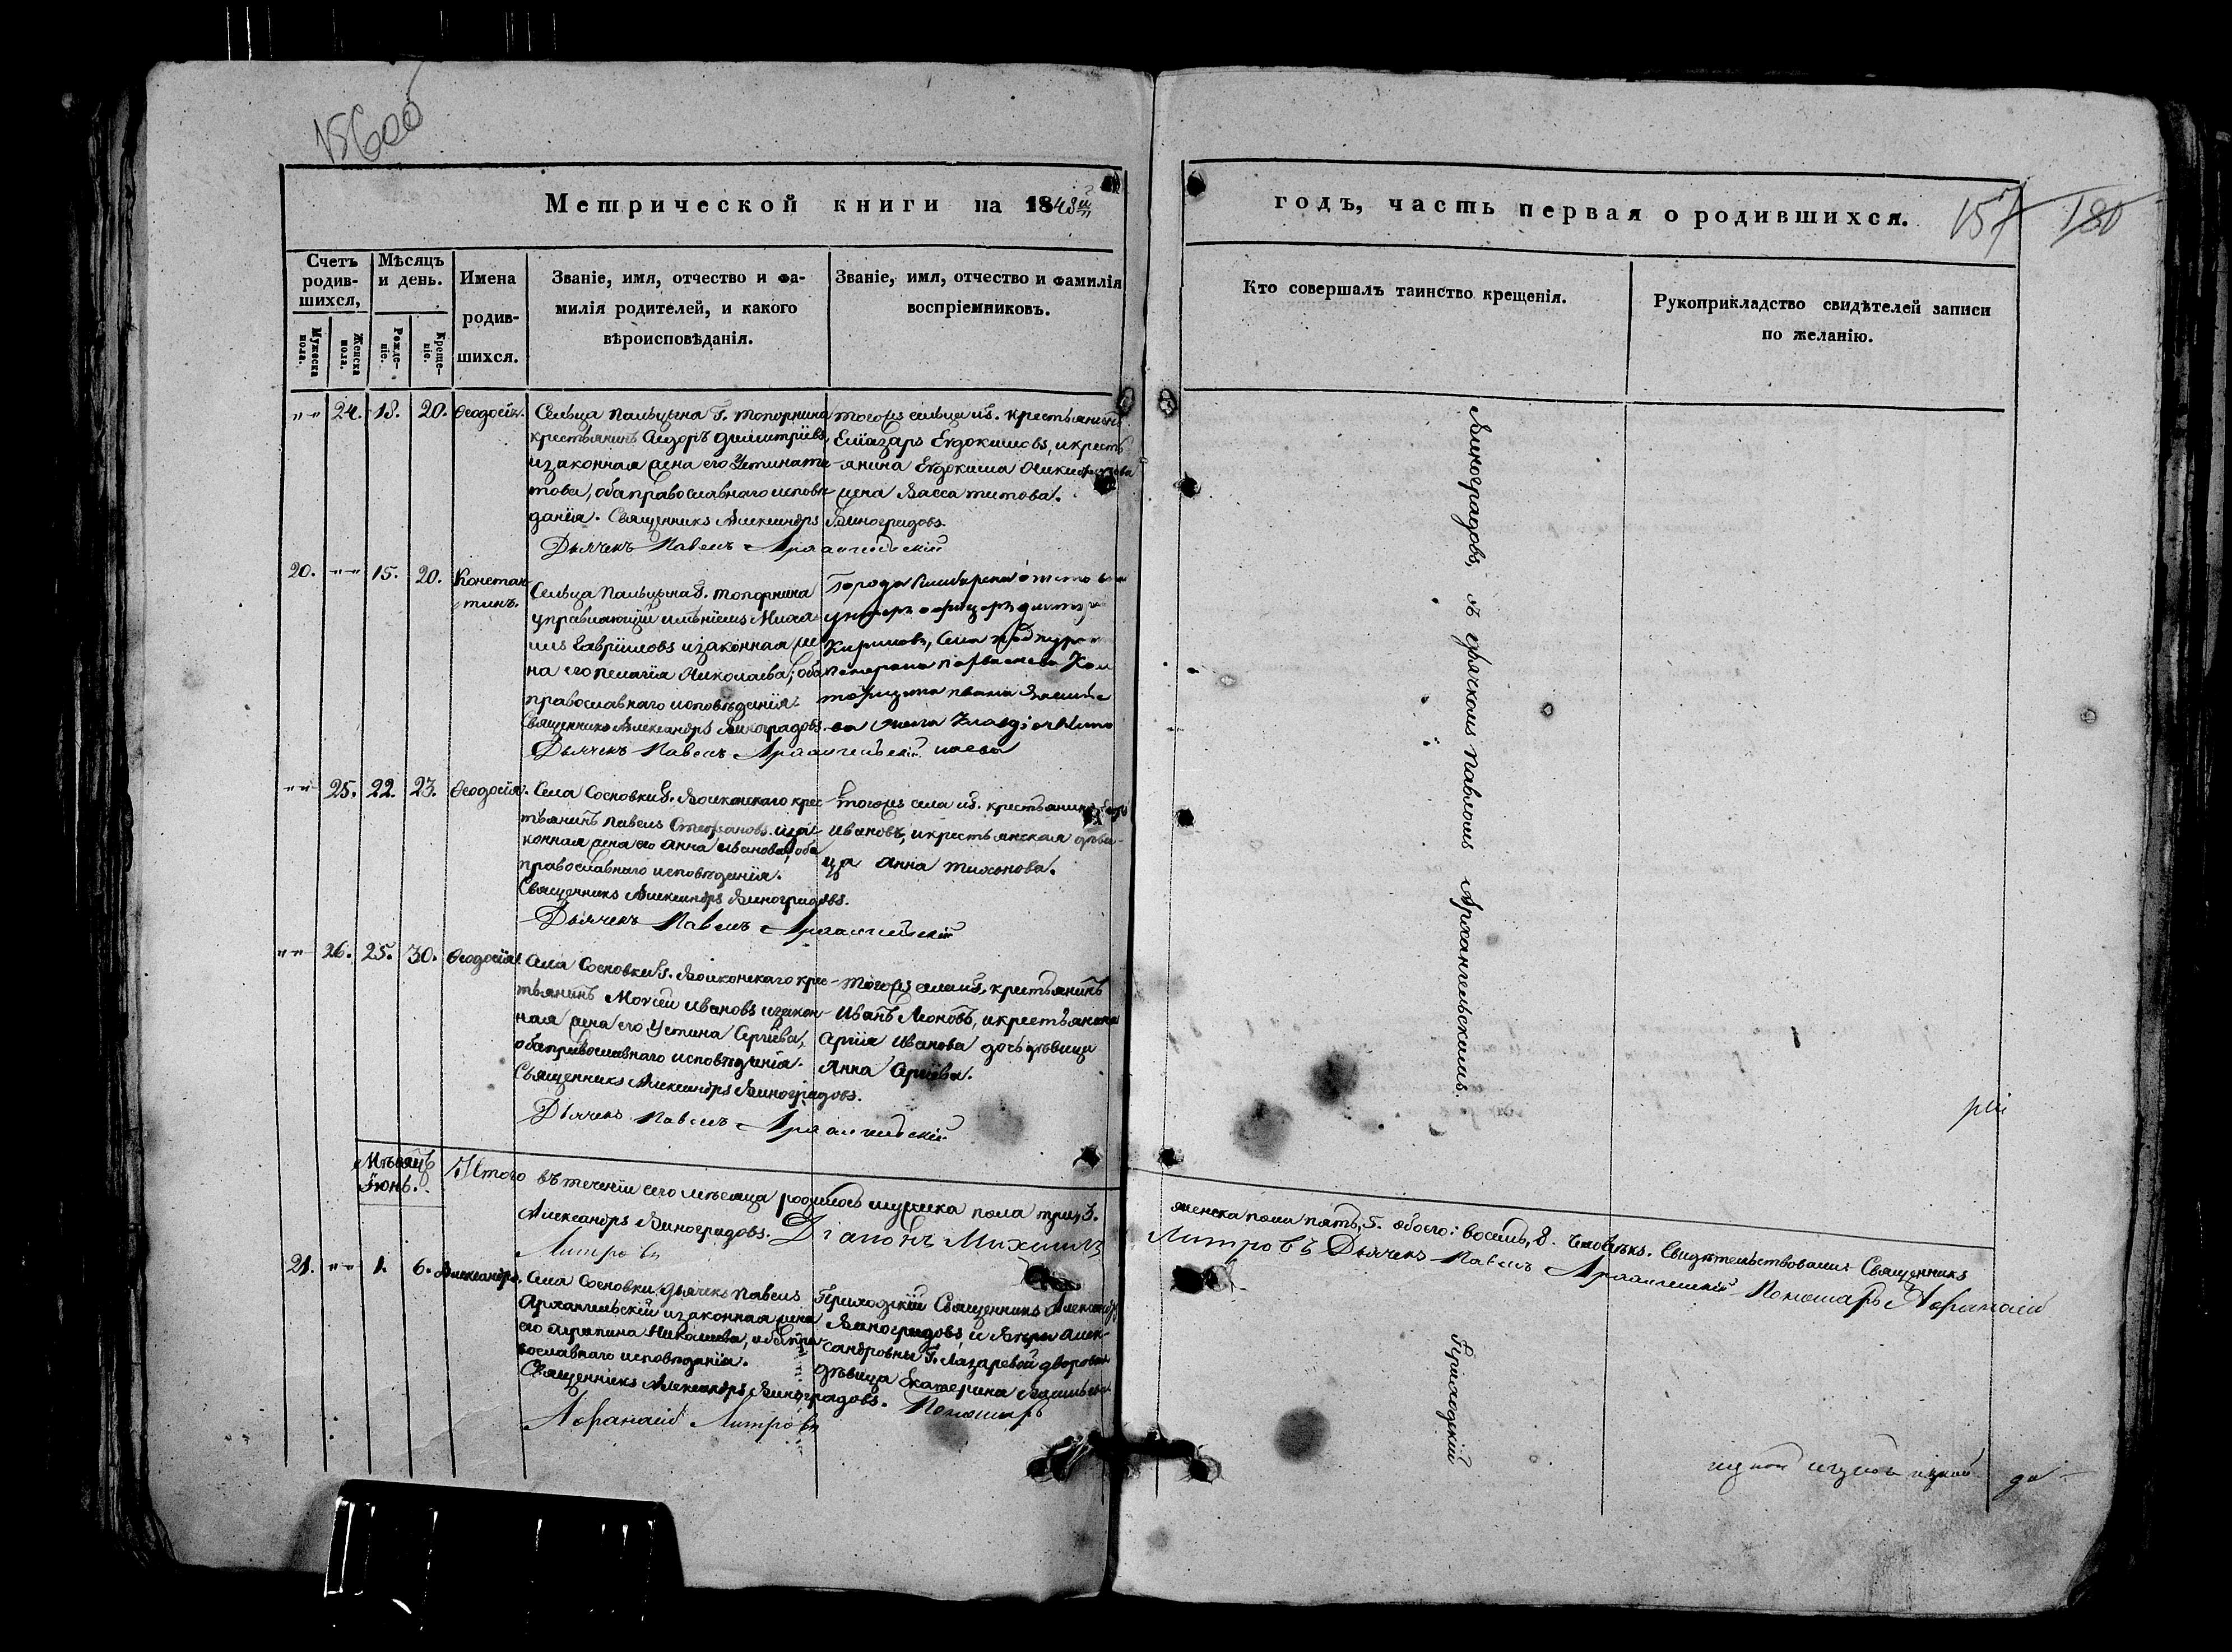 156об
Метрической книги на 1843й
годъ, часть первая о родившихся.
157 180
Счетъ родив-шихся,
Мужеска пола.
Женска пола.
Мѣсяцъ и день.
Рожде-ніе.
Креще-ніе.
Имена
родив-
шихся.
Званіе, имя, отчество и фа-
милія родителей, и какого
вѣроисповѣданія.
Званіе, имя, отчество и фамилія
воспріемниковъ.
Кто совершалъ таинство крещенія.
Рукоприкладство свидѣтелей записи
по желанію.
"-" 24. 18. 20. Ѳеодосія.
Сельца Пальцына Г. Топорнина
крестьянинъ Сидоръ Димитріевъ
и законная жена его Устина Ти-
това, оба православнаго исповѣ-
данія. Священникъ Александръ Виноградовъ.
Дьячекъ Павелъ Архангельскій
тогожъ сельца и Г. крестьянинъ
Елиазаръ Евдокимовъ, и кресть-
янина Евдокима
жена Васса Титова.
20. "-" 15. 20. Констан-
тинъ.
Сельца Пальцына Г. Топорнина
управляющій имѣніемъ Миха-
илъ Гавриловъ и законная же-
на его Пелагія Николаева, оба
православнаго исповѣданія.
Священникъ Александръ Виноградовъ.
Дьячекъ Павелъ Архангельскій
Города Симбирска
унтеръ офицеръ
Кириловъ,
жена
"-" 25. 22. 23. Ѳеодосія.
Села Сосновки Г. Волконскаго крес-
тьянинъ Павелъ Стефановъ и за-
конная жена его Анна Иванова, оба
православнаго исповѣданія.
Священникъ Александръ Виноградовъ.
Дьячекъ Павелъ Архангельскій
тогожъ села и Г. крестьянинъ
Ивановъ, и крестьянская дѣви-
ца Анна Тихонова.
"-" 26. 25. 30. Ѳеодосія.
Села Сосновки Г. Волконскаго крес-
тьянинъ Моисей Ивановъ и закон-
ная жена его Устина Сергѣева,
оба православнаго исповѣданія.
Священникъ Александръ Виноградовъ.
Дьячекъ Павелъ Архангельскій
тогожъ села и Г. крестьянинъ
Иванъ Леоновъ, и крестьянина
Сергія Иванова дочь дѣвица
Анна Сергіева.
Виноградовъ, съ дьячкомъ Павломъ Архангельскимъ.
Итого въ теченіи сего мѣсяца родилось мужеска пола три, 3.
женска пола пять, 5. обоего: восемь, 8. человѣкъ. Свидѣтельствовали: Священникъ
Александръ Виноградовъ. Діаконъ Михаилъ
Митровъ Дьячекъ Павелъ Архангельскій Пономарь Афанасій
Митровъ
Мѣсяцъ
Іюнь.
21. "-" 1. 6. Александръ.
Села Сосновки дьячекъ Павелъ
Архангельскій и законная жена
его Агрипина Николаева, оба пра-
вославнаго исповѣданія.
Священникъ Александръ Виноградовъ. Пономарь
Афанасій Митровъ
Приходскій Священникъ Александръ
Виноградовъ и Вѣры Алек-
сандровны Г. Лазаревой дворовая
дѣвица Екатерина
Приходскій